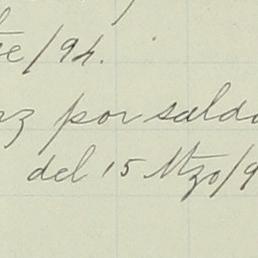 /94.
por saldo
del 15 Mzo/9